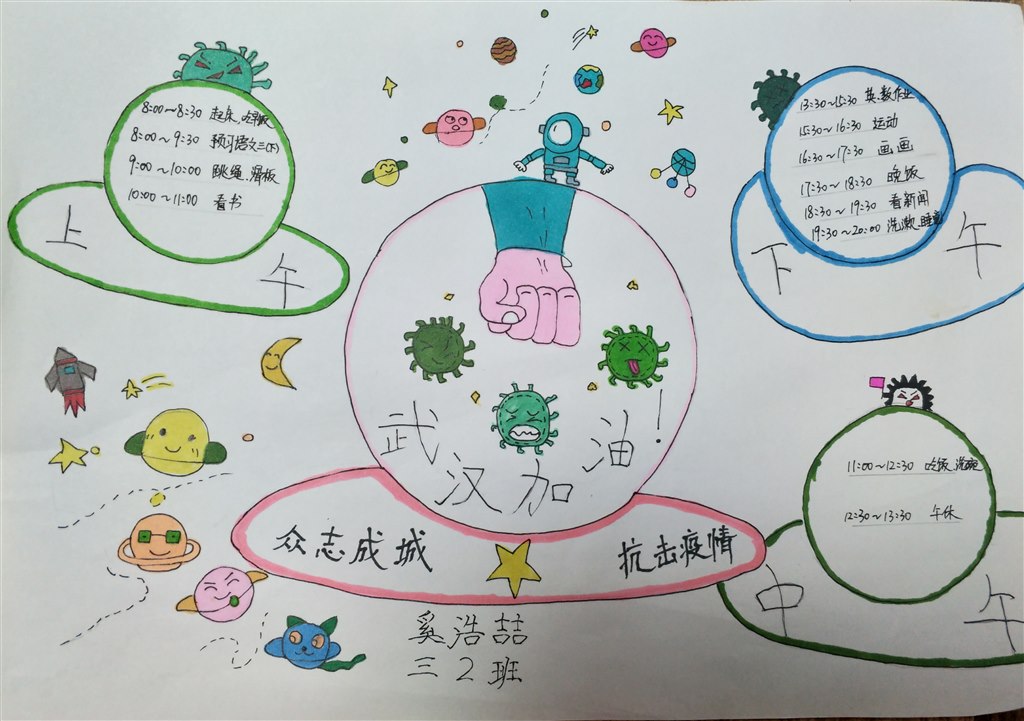 8:00~8:30 起床、吃早饭
8:00~9:30 预习语文三(下)
9:00~10:00 跳绳、滑板
10:00~11:00 看书
上午
13:30~15:30 英、数作业
15:30~16:30 运动
16:30~17:30 画画
17:30~18:30 晚饭
18:30~19:30 看新闻
19:30~20:00 洗漱、睡觉
下午
武汉加油!
众志成城
抗击疫情
11:00~12:30 吃饭、洗碗
12:30~13:30 午休
中午
奚浩喆
三2班